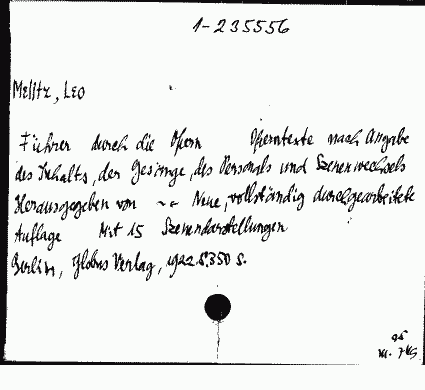 1-235556
Melitz, Leo
Führer durch die Opern Operntexte nach Angabe
des Inhalts, der Gesänge, des Personals und Szenenwechsels
Herausgegeben von ~ Neue, vollständig durchgearbeitete
Auflage Mit 15 Szenendarstellungen
Berlin, Globus Verlag, 1922 S.350 S.